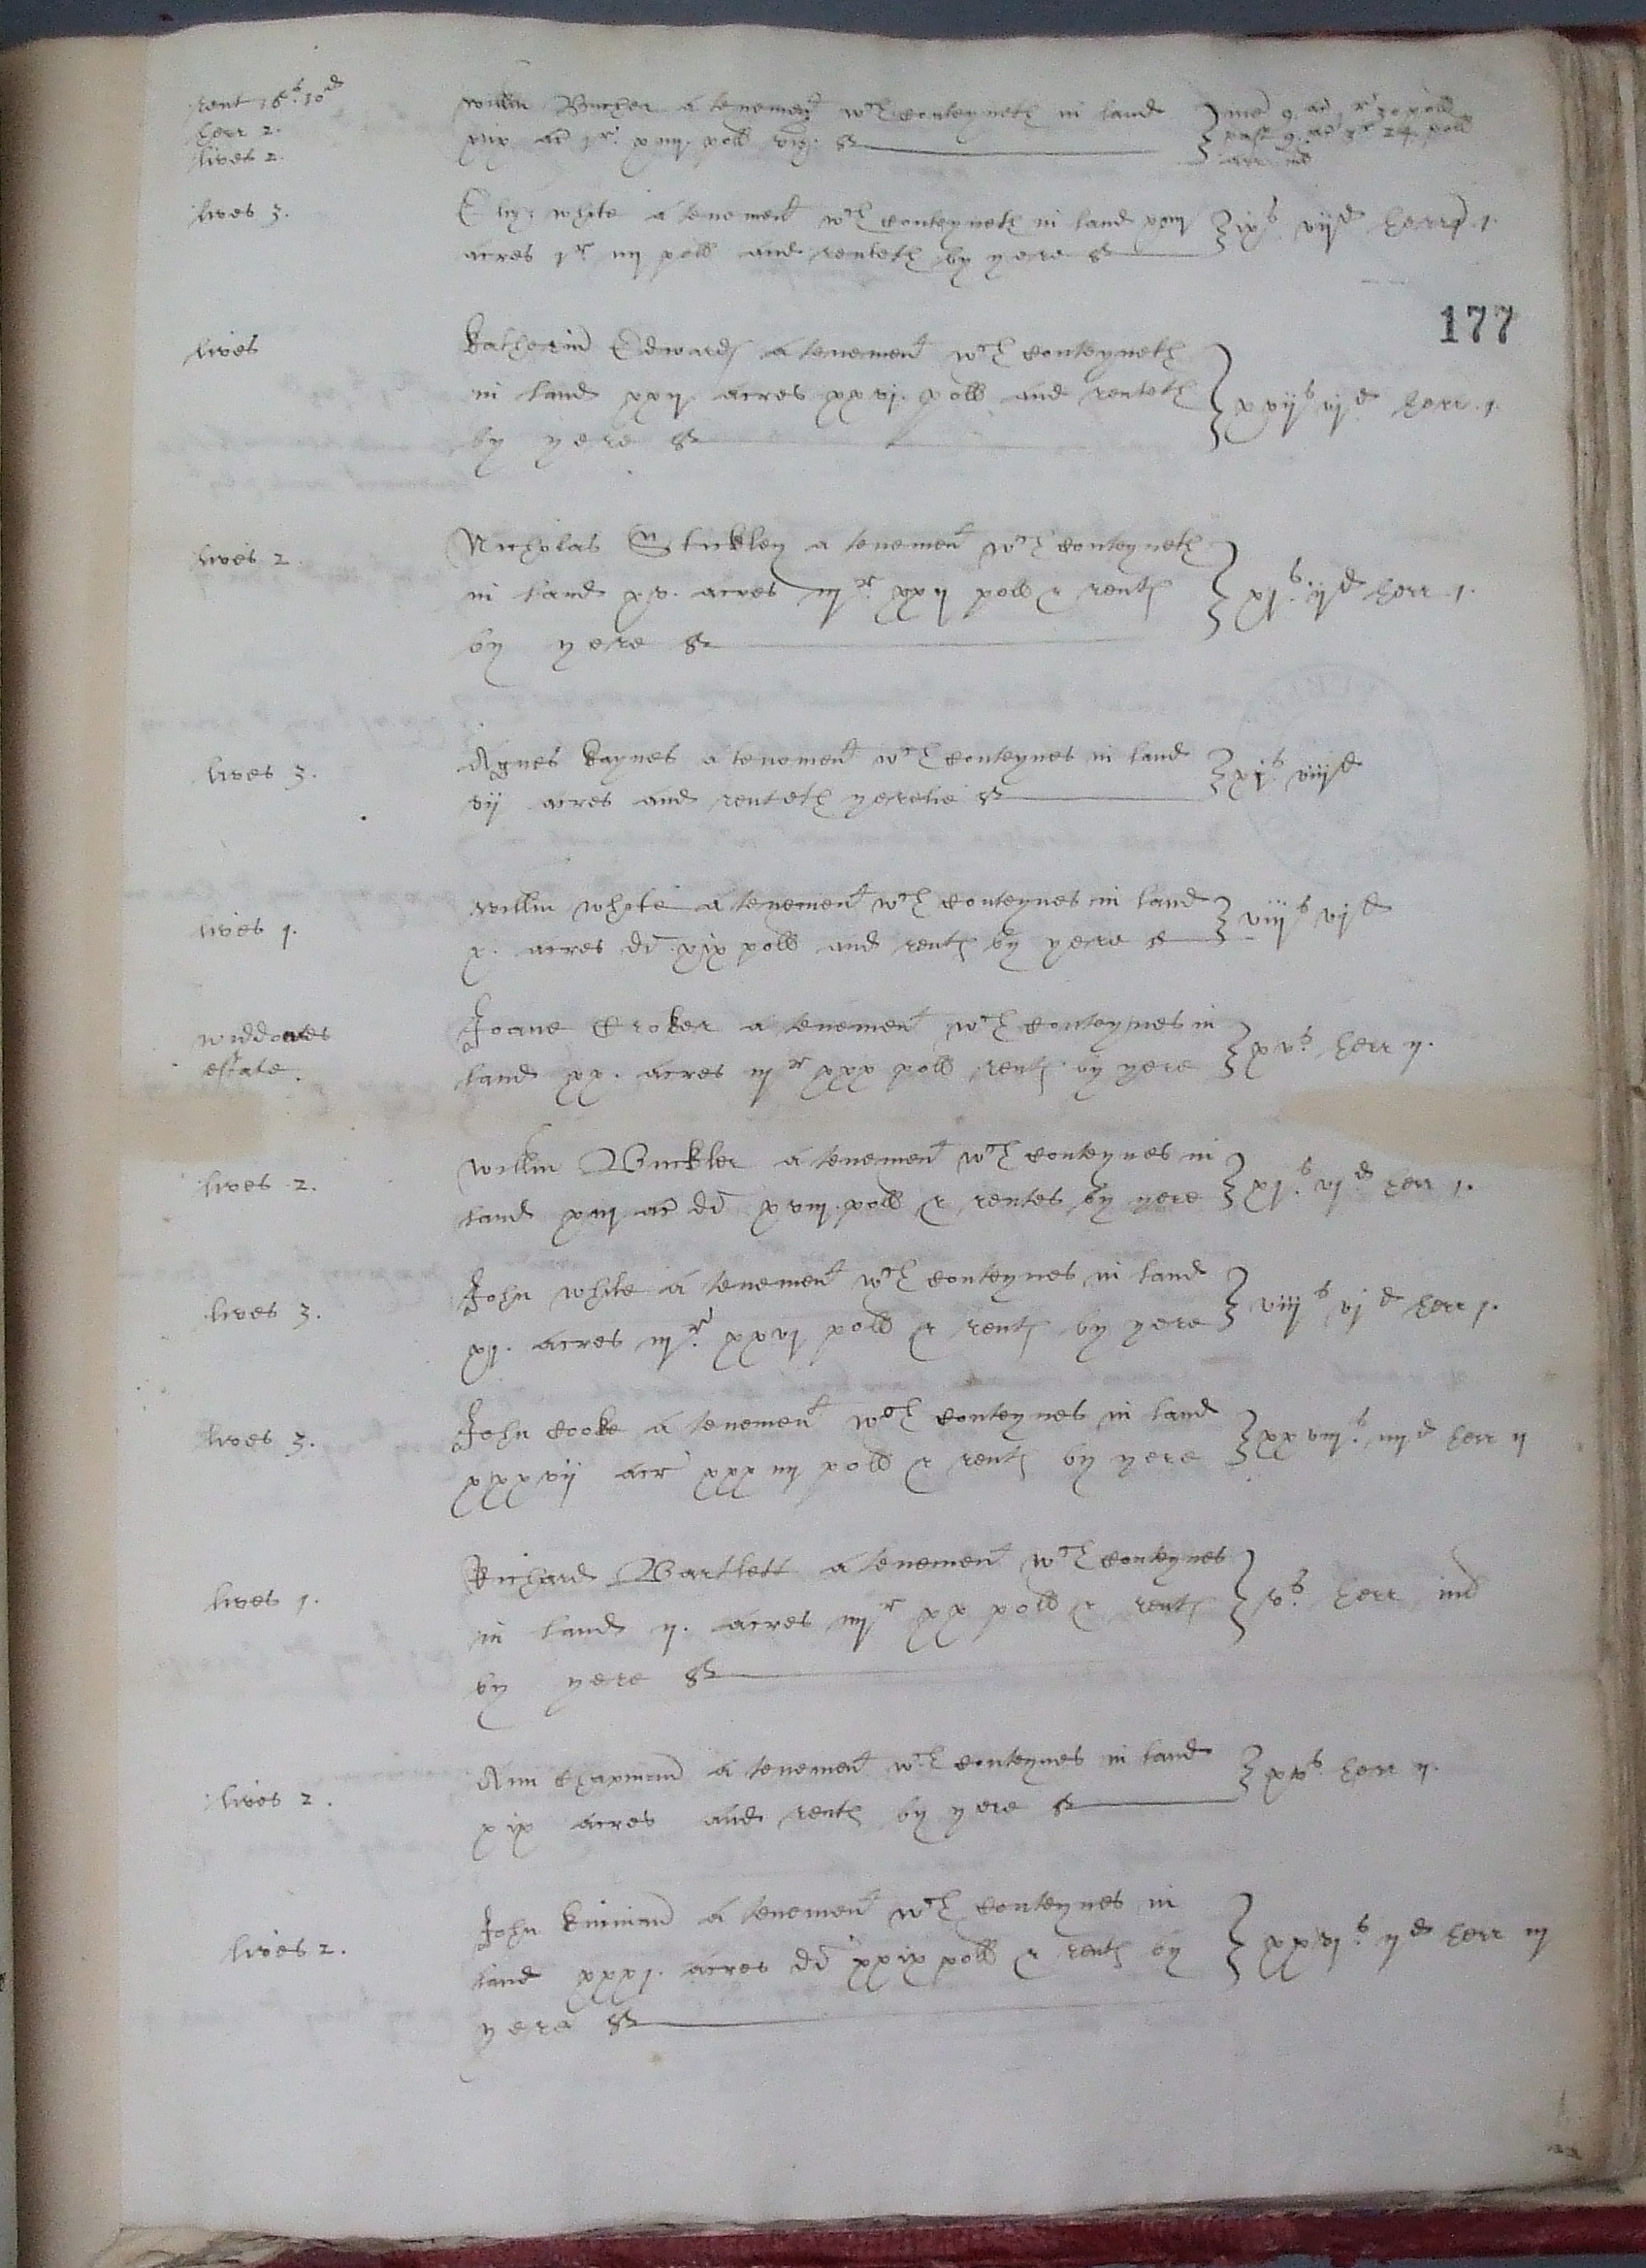 rent 16s. 10d
herr 2.
lives 2.
Willm Bucher a tenement wch conteyneth in land
xix ac 1r. xiiij. poll viz.
me 9 ac 1r 30 poll
past 9 ac 3r 24 poll
arr
lives 3.
Eliz: White a tenement wch conteyneth in land xiiij
acres 1r iiij poll and renteth by yere
ixs viijd herr 1.
177
lives
Katherin Edwards a tenement wch conteyneth
in land xxij acres xxvj. poll and renteth
by yere
xvijs vjd herr .1.
lives 2.
Nicholas Stickley a tenement wch conteyneth
in land xv. acres iijr. xxij poll & renth
by yere
xjs. ijd herr 1.
lives 3.
Agnes Kaynes a tenement wch conteynes in land
vij acres and renteth yerelie
xjs. viijd
lives 1.
Willm White a tenement wch conteynes in land
x. acres di xix poll and renth by yere
viijs vjd
Widdowes
estate.
Joane Croker a tenement wch conteynes in
land xx. acres iijr xxx poll renth by yere
xvs. herr ij.
lives 2.
Willm Buckler a tenement wch conteynes in
land xiij ac di xviij. poll & rentes by yere
xjs. vjd herr 1.
lives 3.
John White a tenement wch conteynes in land
xij. acres iijr. xxvj poll & renth by yere
viijs vjd herr 1.
lives 3.
John Cooke a tenement wch conteynes in land
xxxvij acr xxxiiij poll & renth by yere
xxviijs. iiijd herr ij
lives 1.
Richard Bartlett a tenement wch conteynes
in land ij. acres iijr xx poll & renth
by yere
vs. herr
lives 2.
Ann Chapman a tenement wch conteynes in land
xix acres and renth by yere
xvs. herr ij.
lives 2.
John a tenement wch conteynes in
land xxxj. acres di xxix poll & renth by
yere
xxvjs. ijd herr iij